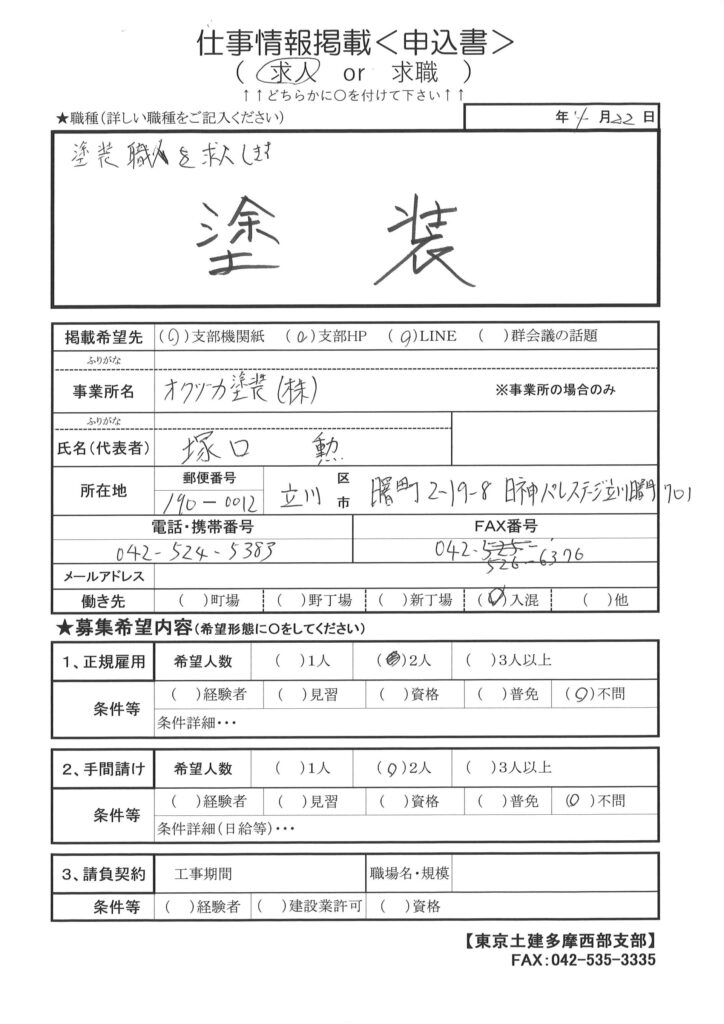 仕事情報掲載＜申込書＞
( 求人 or 求職 )
↑↑どちらかに○を付けて下さい↑↑
★職種(詳しい職種をご記入ください) 年 4 月 22 日
塗装職人を求人します
塗 装
掲載希望先 (○)支部機関紙 (○)支部HP (○)LINE ( )群会議の話題
ふりがな
事業所名 オクヅカ塗装(株) ※事業所の場合のみ
ふりがな
氏名(代表者) 塚口 勲
所在地 郵便番号 190-0012 立川 区 市 曙町2-19-8 日神パレステージ立川曙町701
電話・携帯番号 FAX番号
042-524-5383 042-525-
526-6376
メールアドレス
働き先 ( )町場 ( )野丁場 ( )新丁場 (○)入混 ( )他
★募集希望内容(希望形態に○をしてください)
1、正規雇用 希望人数 ( )1人 (●)2人 ( )3人以上
条件等 ( )経験者 ( )見習 ( )資格 ( )普免 (○)不問
条件詳細・・・
2、手間請け 希望人数 ( )1人 (○)2人 ( )3人以上
条件等 ( )経験者 ( )見習 ( )資格 ( )普免 (○)不問
条件詳細(日給等)・・・
3、請負契約 工事期間 職場名・規模
条件等 ( )経験者 ( )建設業許可 ( )資格
【東京土建多摩西部支部】
FAX:042-535-3335